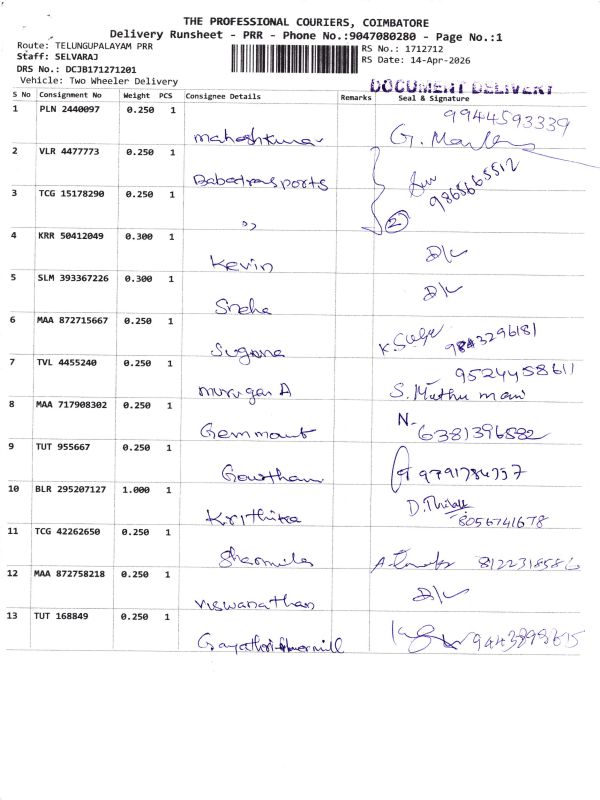 THE PROFESSIONAL COURIERS, COIMBATORE
Delivery Runsheet - PRR - Phone No.:9047080280 - Page No.:1
Route: TELUNGUPALAYAM PRR
Staff: SELVARAJ
DRS No.: DCJB171271201
Vehicle: Two Wheeler Delivery
RS No.: 1712712
RS Date: 14-Apr-2026
DOCUMENT DELIVERY
S No Consignment No Weight PCS Consignee Details Remarks Seal & Signature
1 PLN 2440097 0.250 1 9944593339
2 VLR 4477773 0.250 1 Babatransports 9865665512
3 TCG 15178290 0.250 1 ,, 2
4 KRR 50412049 0.300 1 Kevin D/L
5 SLM 393367226 0.300 1 Sneha D/L
6 MAA 872715667 0.250 1 Suguna 9843296181
7 TVL 4455240 0.250 1 murugan A S. Muthu mari 9524458611
8 MAA 717908302 0.250 1 N- 6381396882
9 TUT 955667 0.250 1 Gowtham
10 BLR 295207127 1.000 1 Krithika 8056741678
11 TCG 42262650 0.250 1 Sharmila 8122318586
12 MAA 872758218 0.250 1 viswanathan D/L
13 TUT 168849 0.250 1